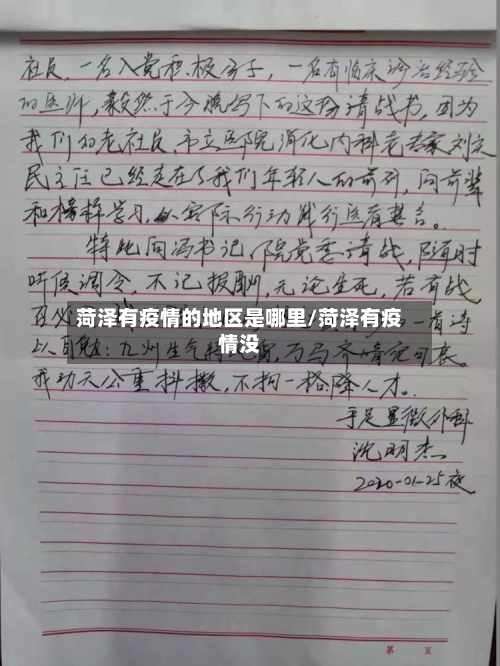 社员,一名入党积极分子,一名有临床诊治经验
的医师,毅然于今晚写下的这份请战书,因为
我们的老社员、市立医院消化内科老专家刘文
民主任已经走在了我们年轻人的前列,向前辈
和榜样学习,以实际行动践行医者誓言。
特此向冯书记、院党委请战,随时
听候调令,不记报酬,无论生死,若有战
菏泽有疫情的地区是哪里/菏泽有疫
情没
一首诗
以自勉:九州生气恃风雷,万马齐喑究可哀。
我劝天公重抖擞,不拘一格降人才。
手足显微外科
沈明杰
2020-01-25夜
第 页